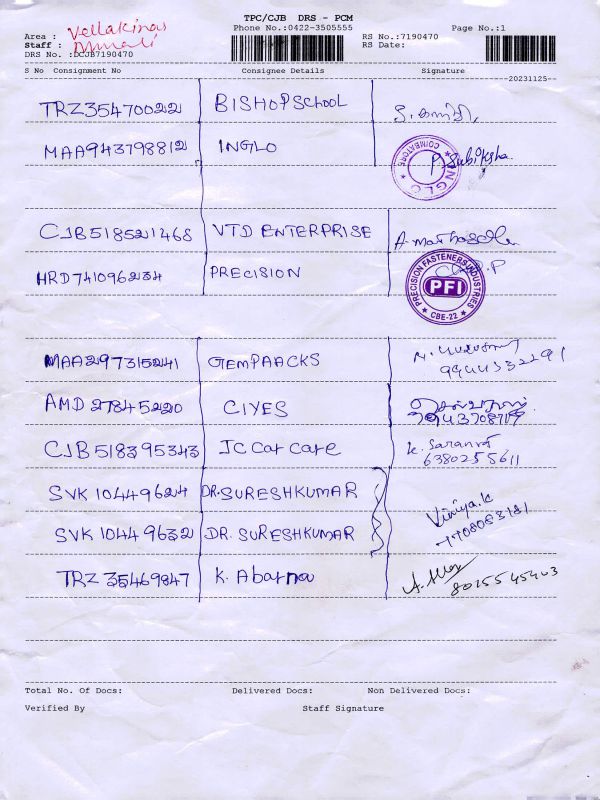 TPC/CJB DRS - PCM
Phone No.:0422-3505555 Page No.:1
Area : Vellakinar
Staff : Murali
RS No.:7190470
RS Date:
DRS No. :DCJB7190470
S No Consignment No Consignee Details Signature
20231125
TRZ35470022 BISHOP School
MAA943798812 INGLO P. Subiksha.
COIMBATORE INGLO
CJB518521468 VTD ENTERPRISE
HRD741096234 PRECISION
PRECISION FASTENERS INDUSTRIES PFI CBE-22
MAA297315241 GEMPAACKS
9944332291
AMD 27845220 CIYES
CJB 518395343 JC Car care K. Saranya
6380255611
SVK 10449624 DR.SURESHKUMAR
SVK 10449632 DR. SURESHKUMAR Viniya.k
TRZ 35469847 K. Abarna
8025545403
Total No. Of Docs: Delivered Docs: Non Delivered Docs:
Verified By Staff Signature